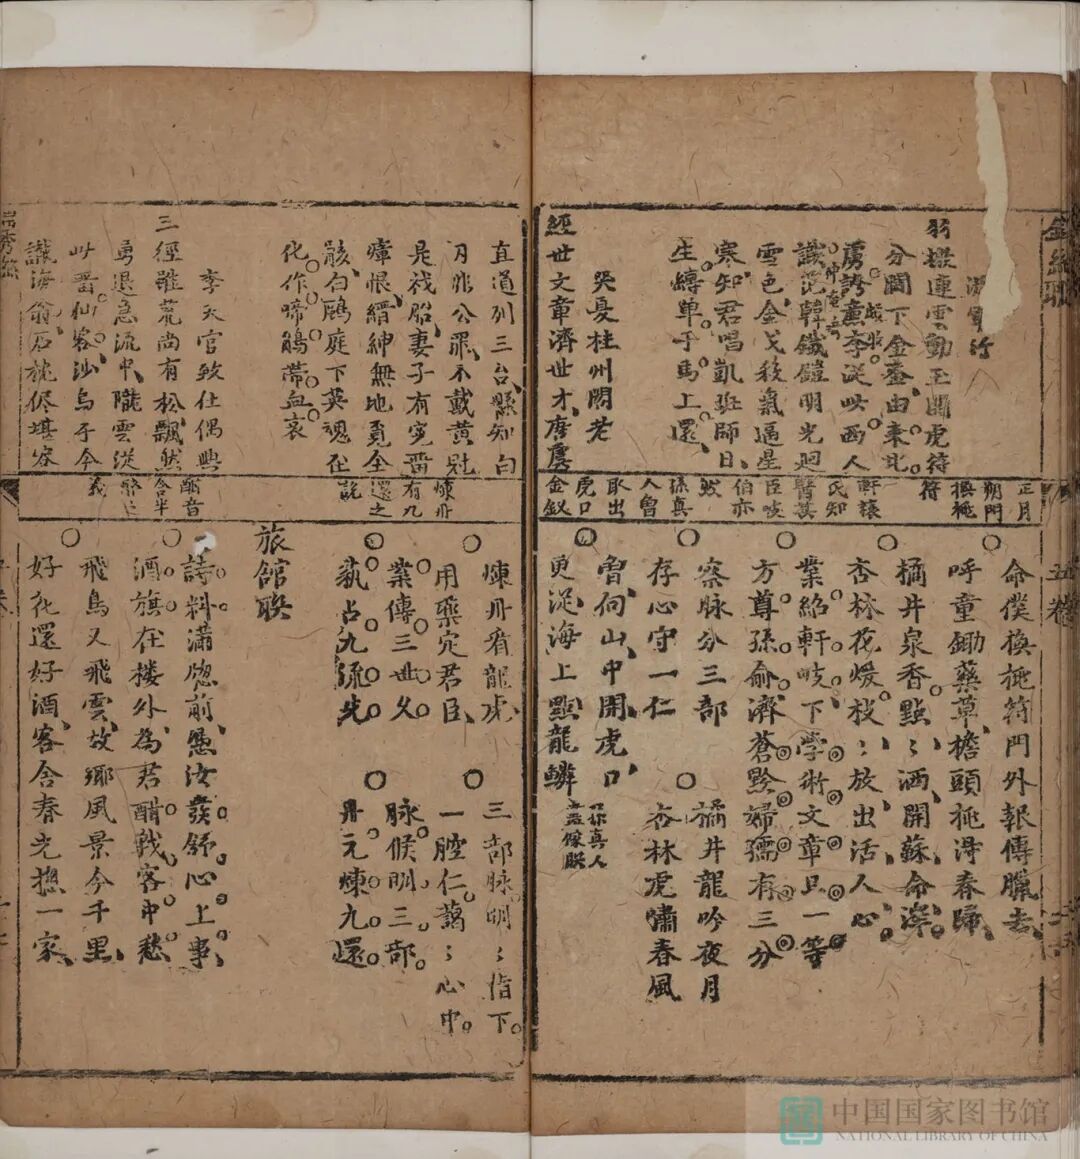 羽檄連雲動玉關虎符
分閫下金臺由來北
虜誇薰李從啖西人
識范韓鐵鎧明光迴
雪色金戈殺氣逼星
寒知君唱凱班師日
生縛單于馬上還
哭夏桂州閣老
經世文章濟世才唐虞
正月
朔門
換桃
符
軒轅
氏知
醫其
臣岐
伯亦
然
孫真
人曾
取出
虎口
金釵
命僕換桃符門外報傳臘去
呼童鋤藥草檐頭桃得春歸
橘井泉香點〻洒開蘇命滓
杏林花煖枝〻放出活人心
業紹軒岐下學術文章只一等
方尊孫俞濟蒼黔婦孺有三分
察脉分三部 橘井龍吟夜月
存心守一仁 杏林虎嘯春風
魯向山中開虎口
更從海上點龍鱗 孫真人
五卷
直道列三台縣知白
刃非公罪不戴黃
是禍胎妻子有寃番
瘴恨縉紳無地覔全
骸白鷴庭下英魂在
化作啼鵑帶血哀
李天官致仕偶興
三徑雖荒尚有松飄然
勇退急流中隴雲從
此番仙客沙鳥于今
讓海翁石枕儘堪容
煉丹
有九
還之
說
酣音
含半
醉之
義
煉丹看龍虎 三部脉明〻指下
用藥定君臣 一腔仁藹〻心中
業傳三世父 脉候明三部
蓺占九流先 丹元煉九還
旅館聯
詩料滿牕前慿汝發舒心上事
酒旗在樓外為君酣戰客中愁
飛鳥又飛雲故鄉風景今千里
好花還好酒客舍春光揔一家
中国国家图书馆
NATIONAL LIBRARY OF CHINA